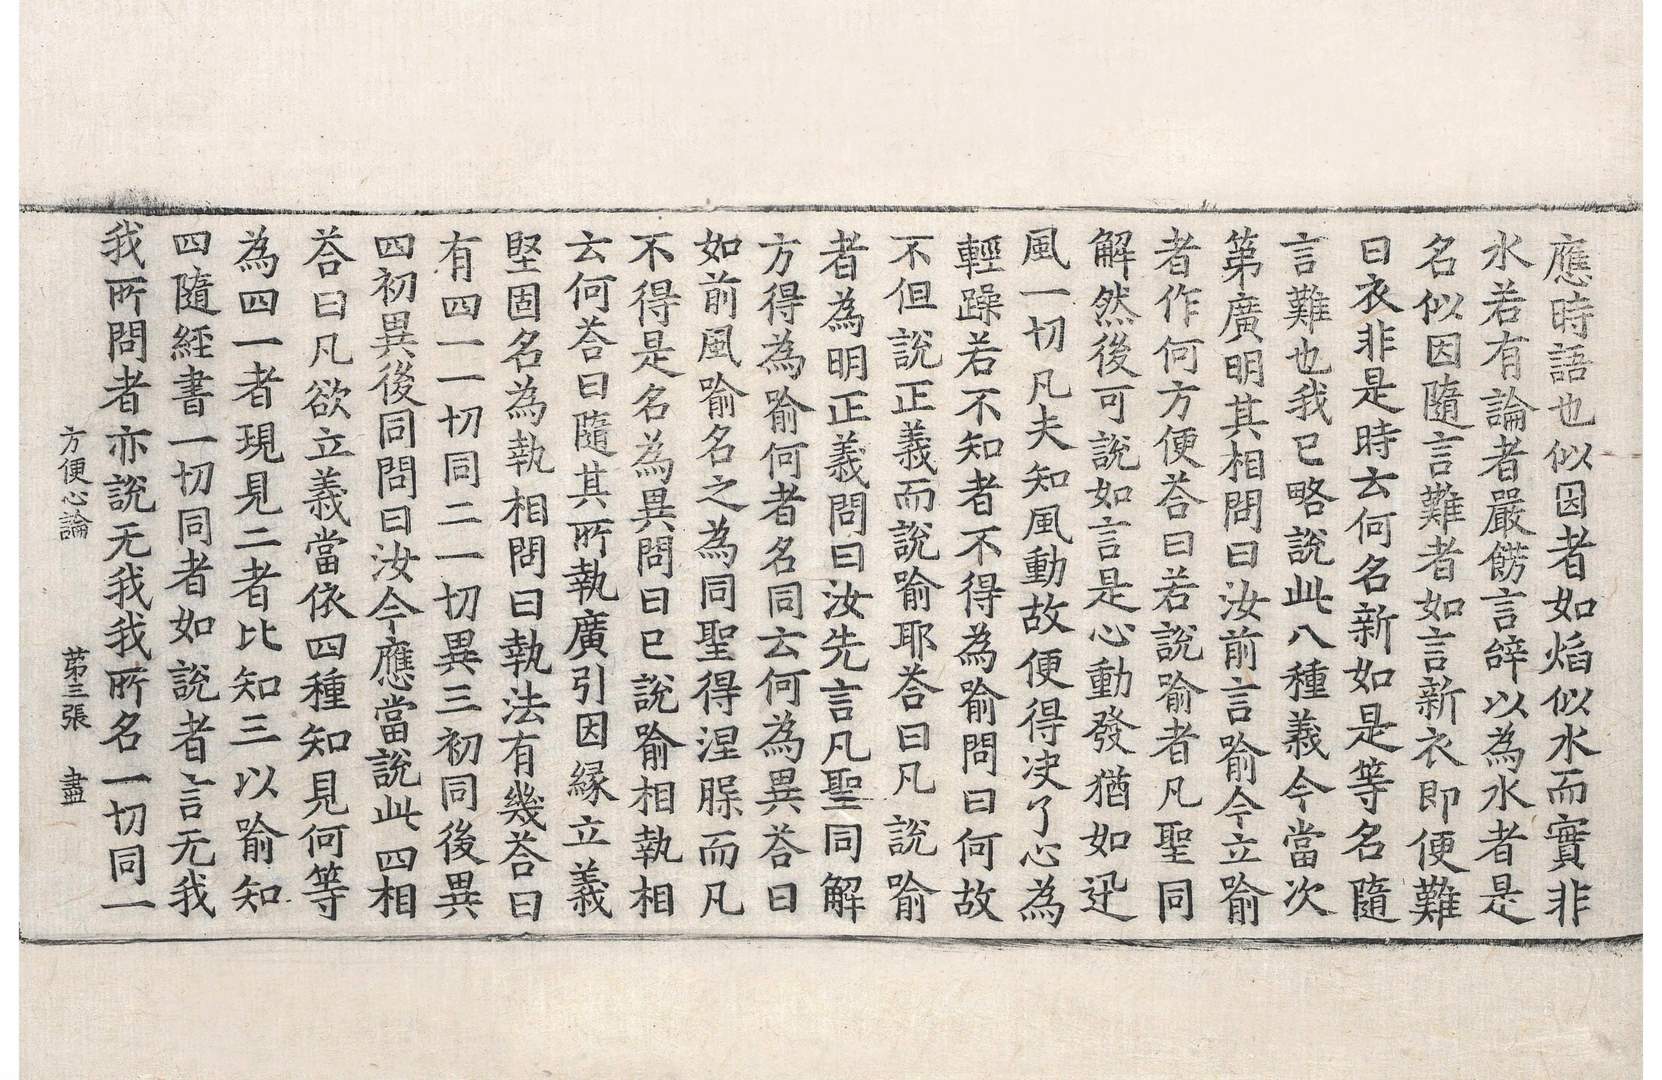 應時語也似因者如焰似水而實非
水若有論者嚴餝言辝以為水者是
名似因隨言難者如言新衣即便難
曰衣非是時云何名新如是等名隨
言難也我已略說此八種義今當次
第廣明其相問曰汝前言喻今立喻
者作何方便荅曰若說喻者凡聖同
解然後可說如言是心動發猶如迅
風一切凡夫知風動故便得决了心為
輕躁若不知者不得為喻問曰何故
不但說正義而說喻耶荅曰凡說喻
者為明正義問曰汝先言凡聖同解
方得為喻何者名同云何為異荅曰
如前風喻名之為同聖得涅槃而凡
不得是名為異問曰已說喻相執相
云何荅曰隨其所執廣引因緣立義
堅固名為執相問曰執法有幾荅曰
有四一一切同二一切異三初同後異
四初異後同問曰汝今應當說此四相
荅曰凡欲立義當依四種知見何等
為四一者現見二者比知三以喻知
四隨經書一切同者如說者言无我
我所問者亦說无我我所名一切同一
方便心論 苐三張 盡